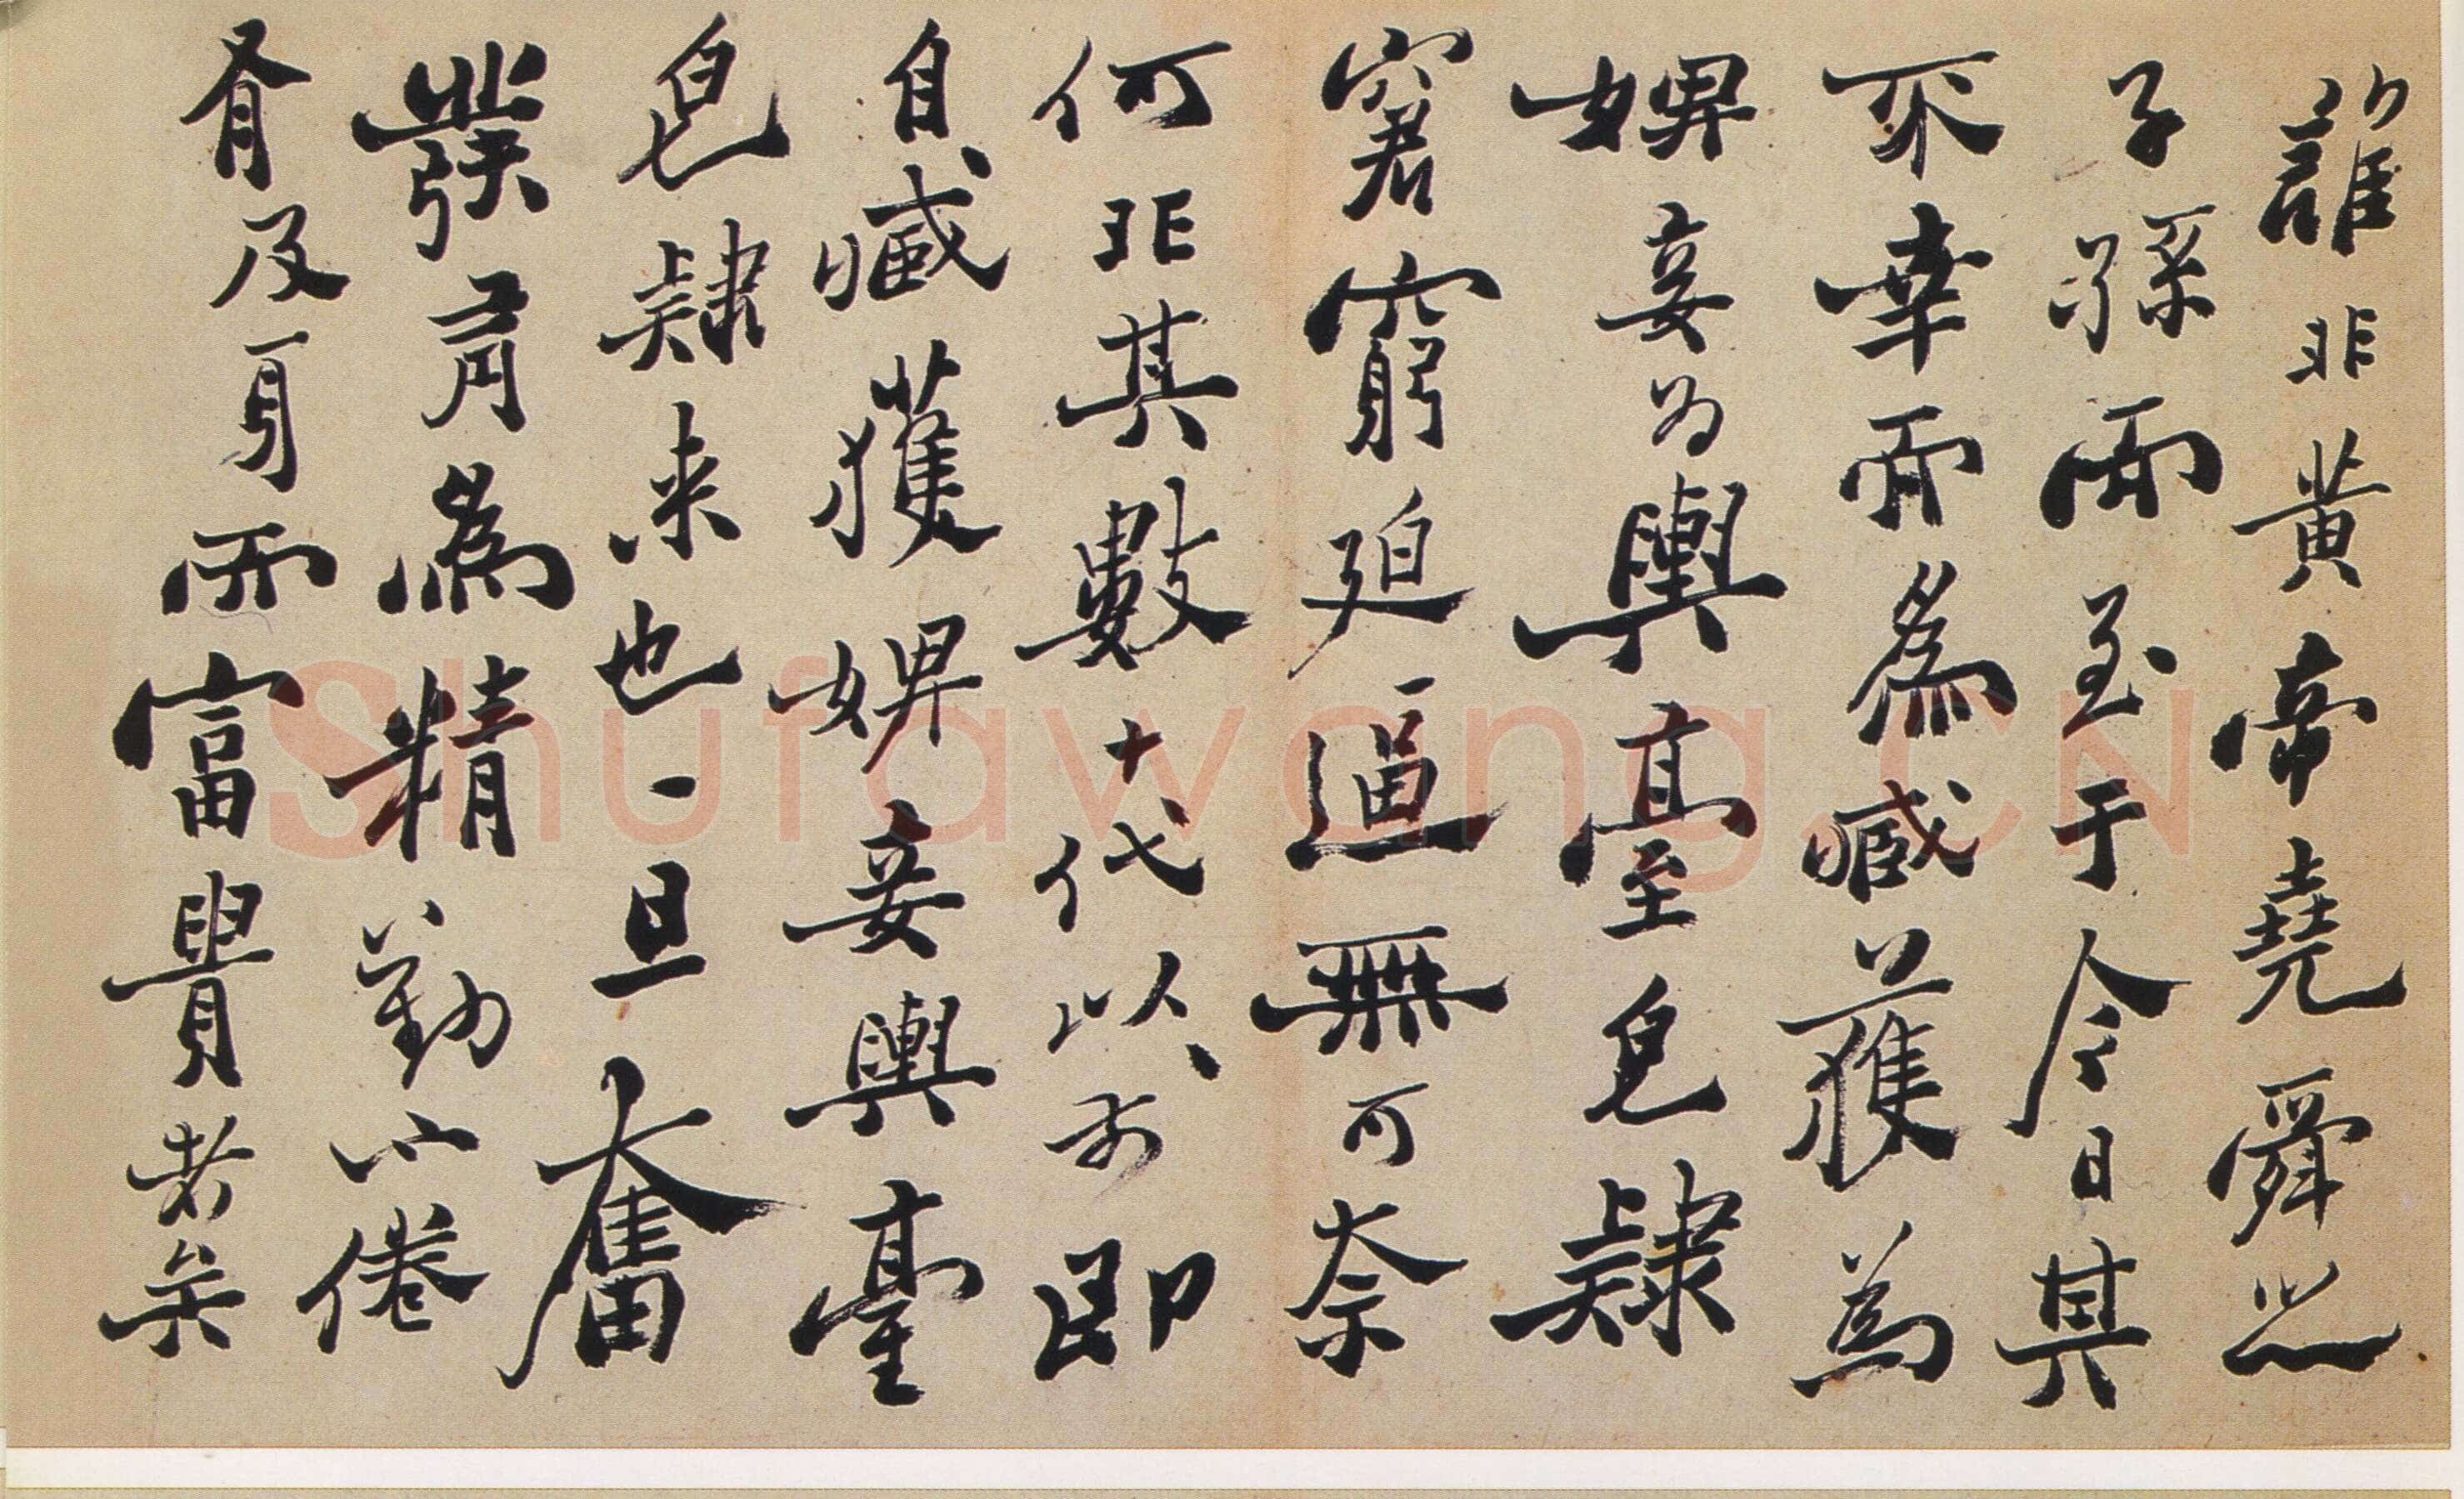 誰非黃帝堯舜之
子孫而至于今日其
不幸而為臧獲為
婢妾為輿臺皂隸
窘窮迫逼無可奈
何非其數十代以前即
自臧獲婢妾輿臺
皂隸来也一旦奮
發有為精勤不倦
有及身而富貴者矣
Shufawang.CN